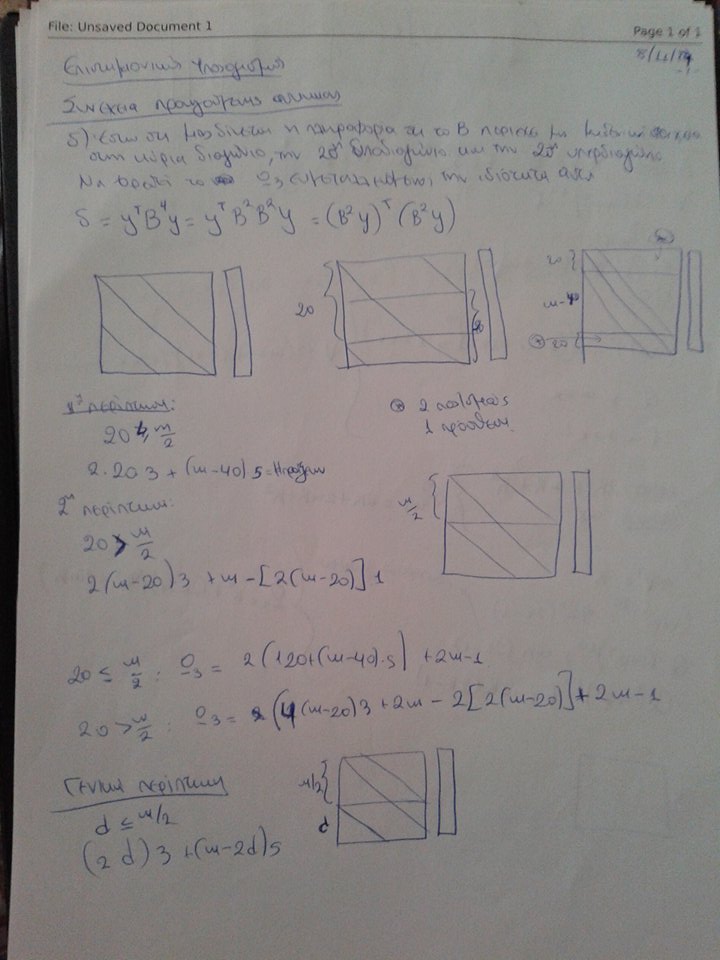 File: Unsaved Document 1
Page 1 of 1
Επιστημονικός Υπολογισμός
Συνέχεια προηγούμενης άσκησης
δ) Έστω ότι μας δίνεται η πληροφορία ότι το B περιέχει μη μηδενικά στοιχεία
στη κύρια διαγώνιο, την 20η υποδιαγώνιο και την 20η υπερδιαγώνιο
Να βρεθεί το Ω₃ την ιδιότητα
S = yᵀB⁴y = yᵀB²B²y = (B²y)ᵀ(B²y)
20
20
20
m-40
⊛ 20
1η περίπτωση:
20 ≤ m/2
2·20 3 + (m-40) 5 = πράξεων
⊛ 2 πολ/σμούς
1 πρόσθεση
2η περίπτωση:
20 > m/2
2(m-20)3 + m - [2(m-20)] 1
m/2
20 ≤ m/2 : Ω₃ = 2(120+(m-40)·5) + 2m-1
20 > m/2 : Ω₃ = (4(m-20)3 + 2m - 2[2(m-20)] + 2m-1
Γενική περίπτωση
d ≤ m/2
(2 d) 3 + (m-2d)5
m/2
d